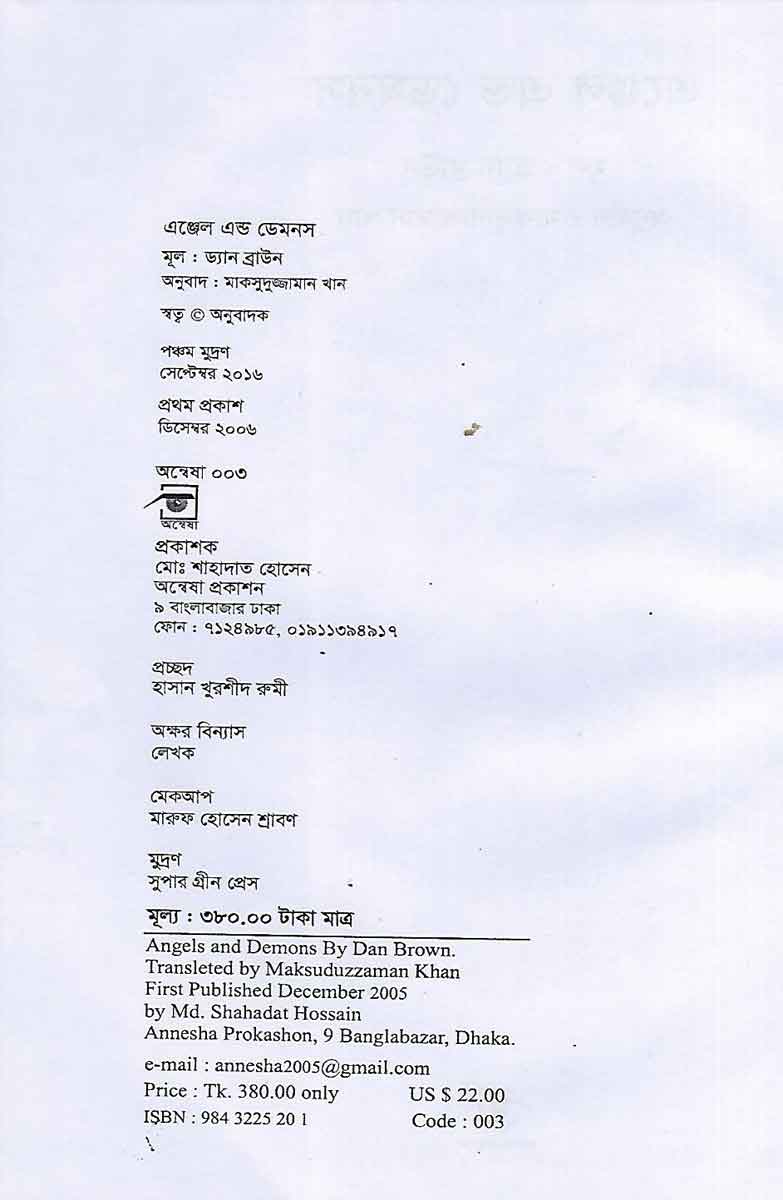 এঞ্জেল এন্ড ডেমনস
মূল : ড্যান ব্রাউন
অনুবাদ : মাকসুদুজ্জামান খান
স্বত্ব © অনুবাদক
পঞ্চম মুদ্রণ
সেপ্টেম্বর ২০১৬
প্রথম প্রকাশ
ডিসেম্বর ২০০৬
অন্বেষা ০০৩
অন্বেষা
প্রকাশক
মোঃ শাহাদাত হোসেন
অন্বেষা প্রকাশন
৯ বাংলাবাজার ঢাকা
ফোন : ৭১২৪৯৮৫, ০১৯১১৩৯৪৯১৭
প্রচ্ছদ
হাসান খুরশীদ রুমী
অক্ষর বিন্যাস
লেখক
মেকআপ
মারুফ হোসেন শ্রাবণ
মুদ্রণ
সুপার গ্রীন প্রেস
মূল্য : ৩৮০.০০ টাকা মাত্র
Angels and Demons By Dan Brown.
Transleted by Maksuduzzaman Khan
First Published December 2005
by Md. Shahadat Hossain
Annesha Prokashon, 9 Banglabazar, Dhaka.
e-mail : annesha2005@gmail.com
Price : Tk. 380.00 only US $ 22.00
ISBN : 984 3225 20 1 Code : 003